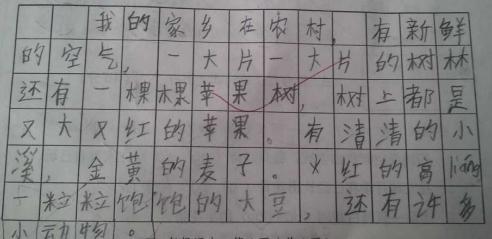 我的家乡在农村,有新鲜
的空气,一大片一大片的树林
还有一棵棵苹果树,树上都是
又大又红的苹果。有清清的小
溪,金黄的麦子。火红的高liáng
一粒粒饱饱的大豆,还有许多
小动物。